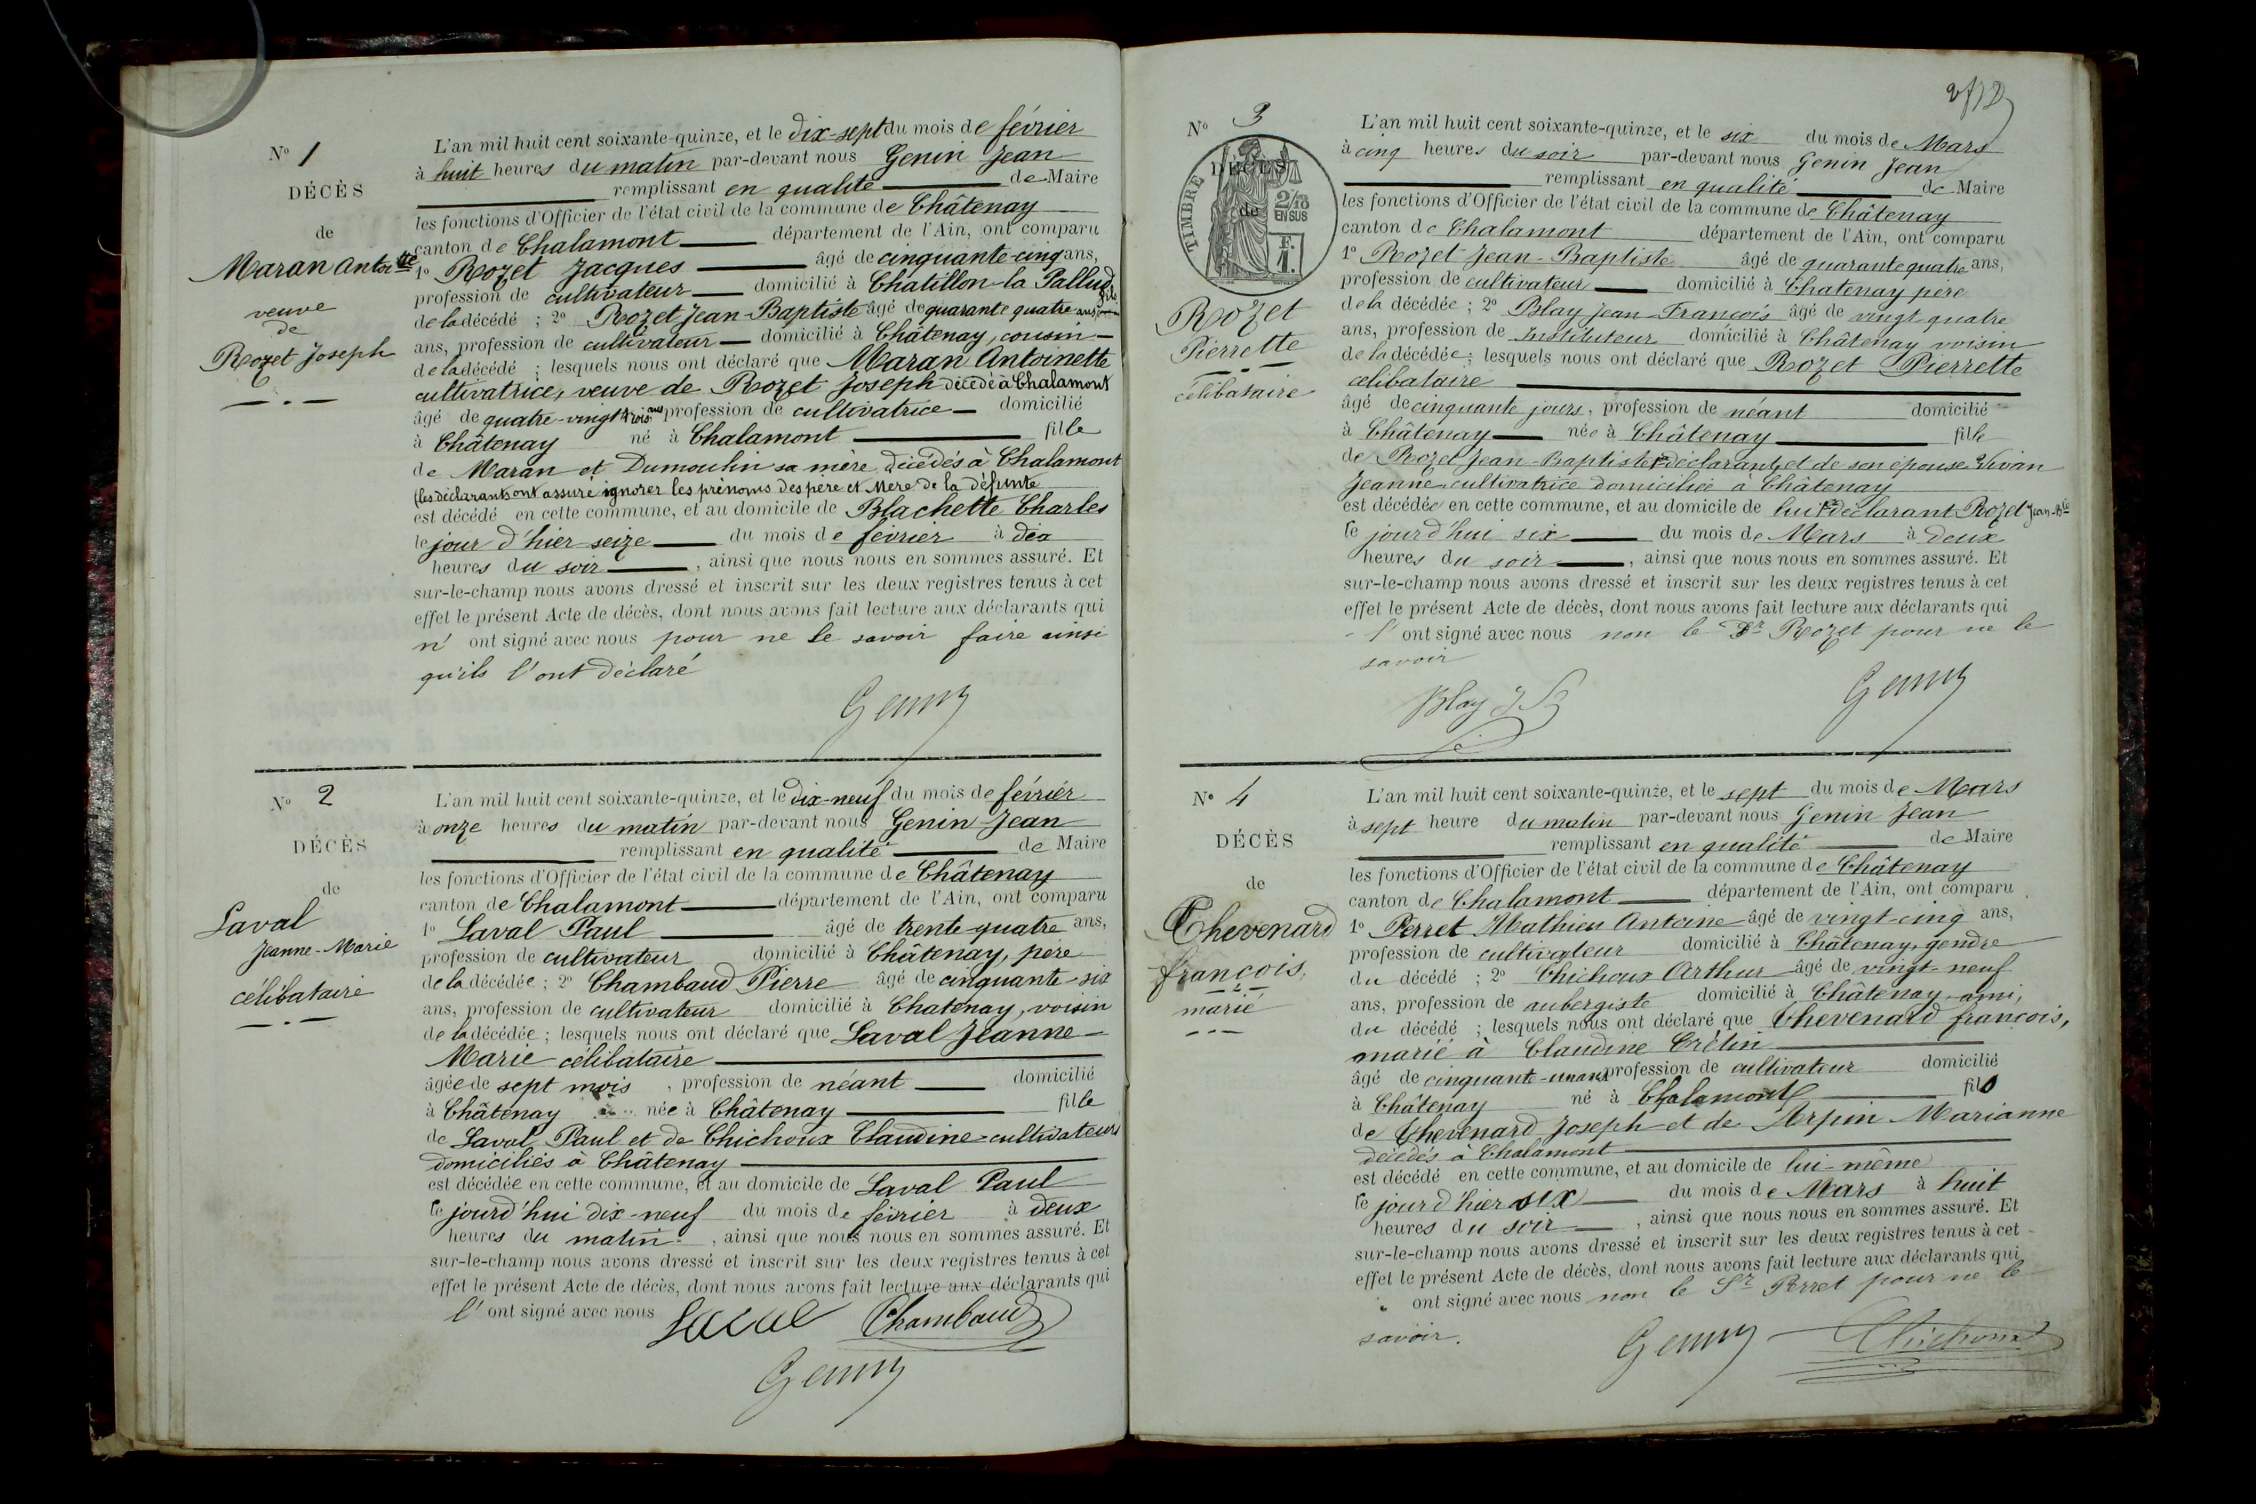 N° 1
DÉCÈS
de
Maran Antoi<sup>tte</sup>
veuve
de
Rozet Joseph
L'an mil huit cent soixante-quinze, et le dix-sept du mois de février
à huit heures du matin par-devant nous Genin Jean
remplissant en qualité de Maire
les fonctions d'Officier de l'état civil de la commune de Châtenay
canton de Chalamont département de l'Ain, ont comparu
1° Rozet Jacques âgé de cinquante-cinq ans,
profession de cultivateur domicilié à Châtillon-la Pallud fils
de la décédé ; 2° Rozet Jean-Baptiste âgé de quarante quatre ans
ans, profession de cultivateur domicilié à Châtenay, cousin
de la décédé ; lesquels nous ont déclaré que Maran Antoinette
cultivatrice, veuve de Rozet Joseph décédé à Chalamont
âgé de quatre-vingt trois ans profession de cultivatrice domicilié
à Châtenay né à Chalamont fille
de Maran et Dumoulin sa mère décédés à Chalamont
(les déclarants ont assuré ignorer les prénoms des père et Mère de la défunte
est décédé en cette commune, et au domicile de Blachette Charles
le jour d'hier seize du mois de février à dix
heures du soir, ainsi que nous nous en sommes assuré. Et
sur-le-champ nous avons dressé et inscrit sur les deux registres tenus à cet
effet le présent Acte de décès, dont nous avons fait lecture aux déclarants qui
n' ont signé avec nous pour ne le savoir faire ainsi
qu'ils l'ont déclaré
Genin
N° 2
DÉCÈS
de
Laval
Jeanne-Marie
célibataire
L'an mil huit cent soixante-quinze, et le dix-neuf du mois de février
à onze heures du matin par-devant nous Genin Jean
remplissant en qualité de Maire
les fonctions d'Officier de l'état civil de la commune de Châtenay
canton de Chalamont département de l'Ain, ont comparu
1° Laval Paul âgé de trente-quatre ans,
profession de cultivateur domicilié à Châtenay, père
de la décédée ; 2° Chambaud Pierre âgé de cinquante-six
ans, profession de cultivateur domicilié à Chatenay, voisin
de la décédée ; lesquels nous ont déclaré que Laval Jeanne-
Marie célibataire
âgée de sept mois, profession de néant domicilié
à Châtenay née à Châtenay fille
de Laval Paul et de Chichoux Claudine cultivateurs
domiciliés à Châtenay
est décédée en cette commune, et au domicile de Laval Paul
le jourd'hui dix-neuf du mois de février à deux
heures du matin, ainsi que nous nous en sommes assuré. Et
sur-le-champ nous avons dressé et inscrit sur les deux registres tenus à cet
effet le présent Acte de décès, dont nous avons fait lecture aux déclarants qui
l' ont signé avec nous Laval Chambaud
Genin
N° 3
DÉCÈS
de
TIMBRE
2/10
EN SUS
F.
1.
Rozet
Pierrette
célibataire
L'an mil huit cent soixante-quinze, et le six du mois de Mars
à cinq heures du soir par-devant nous Genin Jean
remplissant en qualité de Maire
les fonctions d'Officier de l'état civil de la commune de Châtenay
canton de Chalamont département de l'Ain, ont comparu
1° Rozet Jean-Baptiste âgé de quarante quatre ans,
profession de cultivateur domicilié à Chatenay père
de la décédée ; 2° Blay Jean-François âgé de vingt-quatre
ans, profession de Instituteur domicilié à Châtenay voisin
de la décédée ; lesquels nous ont déclaré que Rozet Pierrette
célibataire
âgé de cinquante jours, profession de néant domicilié
à Châtenay née à Châtenay fille
de Rozet Jean-Baptiste 1er déclarant, et de son épouse Vivian
Jeanne cultivatrice domiciliée à Châtenay
est décédée en cette commune, et au domicile de lui 1er déclarant Rozet Jean-Bte
le jourd'hui six du mois de Mars à deux
heures du soir, ainsi que nous nous en sommes assuré. Et
sur-le-champ nous avons dressé et inscrit sur les deux registres tenus à cet
effet le présent Acte de décès, dont nous avons fait lecture aux déclarants qui
l' ont signé avec nous non le Sr Rozet pour ne le
savoir
Blay Genin
N° 4
DÉCÈS
de
Chevenard
françois,
marié
L'an mil huit cent soixante-quinze, et le sept du mois de Mars
à sept heure du matin par-devant nous Genin Jean
remplissant en qualité de Maire
les fonctions d'Officier de l'état civil de la commune de Châtenay
canton de Chalamont département de l'Ain, ont comparu
1° Perret Mathieu Antoine âgé de vingt-cinq ans,
profession de cultivateur domicilié à Châtenay, gendre
du décédé ; 2° Chichoux Arthur âgé de vingt-neuf
ans, profession de aubergiste domicilié à Châtenay ami,
du décédé ; lesquels nous ont déclaré que Chevenard françois,
marié à Claudine Crétin
âgé de cinquante-un ans profession de cultivateur domicilié
à Châtenay né à Chalamont fils
de Chevenard Joseph et de Arpin Marianne
décédés à Chalamont
est décédé en cette commune, et au domicile de lui-même
le jour d'hier six du mois de Mars à huit
heures du soir, ainsi que nous nous en sommes assuré. Et
sur-le-champ nous avons dressé et inscrit sur les deux registres tenus à cet
effet le présent Acte de décès, dont nous avons fait lecture aux déclarants qui
ont signé avec nous non le Sr Perret pour ne le
savoir.
Genin Chichoux